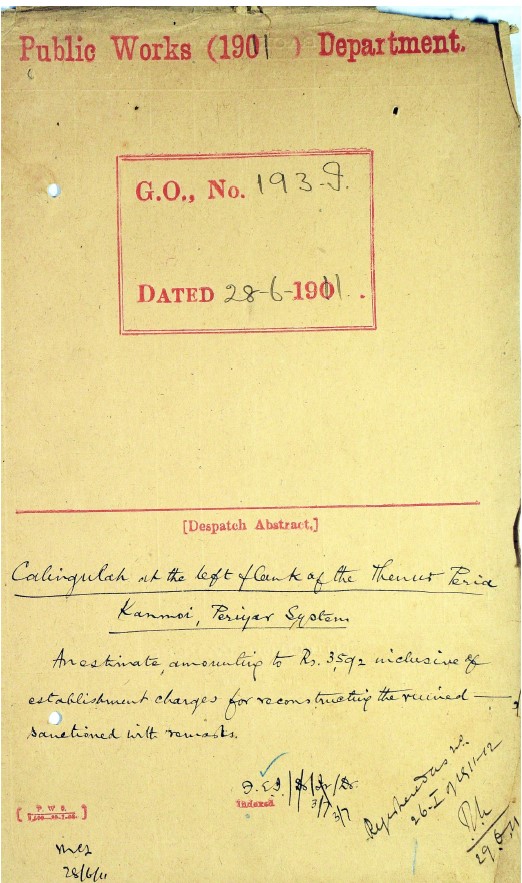 Public Works (1901 ) Department.
G.O., No. 193-I.
DATED 28-6-1911.
[Despatch Abstract,]
Calingulah at the left flank of the Thenur Peria
Kanmoi, Periyar System
An estimate, amounting to Rs. 3592 inclusive of
establishment charges for reconstructing the ruined —
sanctioned with remarks.
Indexed
3/7
3/7
Registered as no.
26-I of 1911-12
P. W. S.
28/6/11
29.6.11